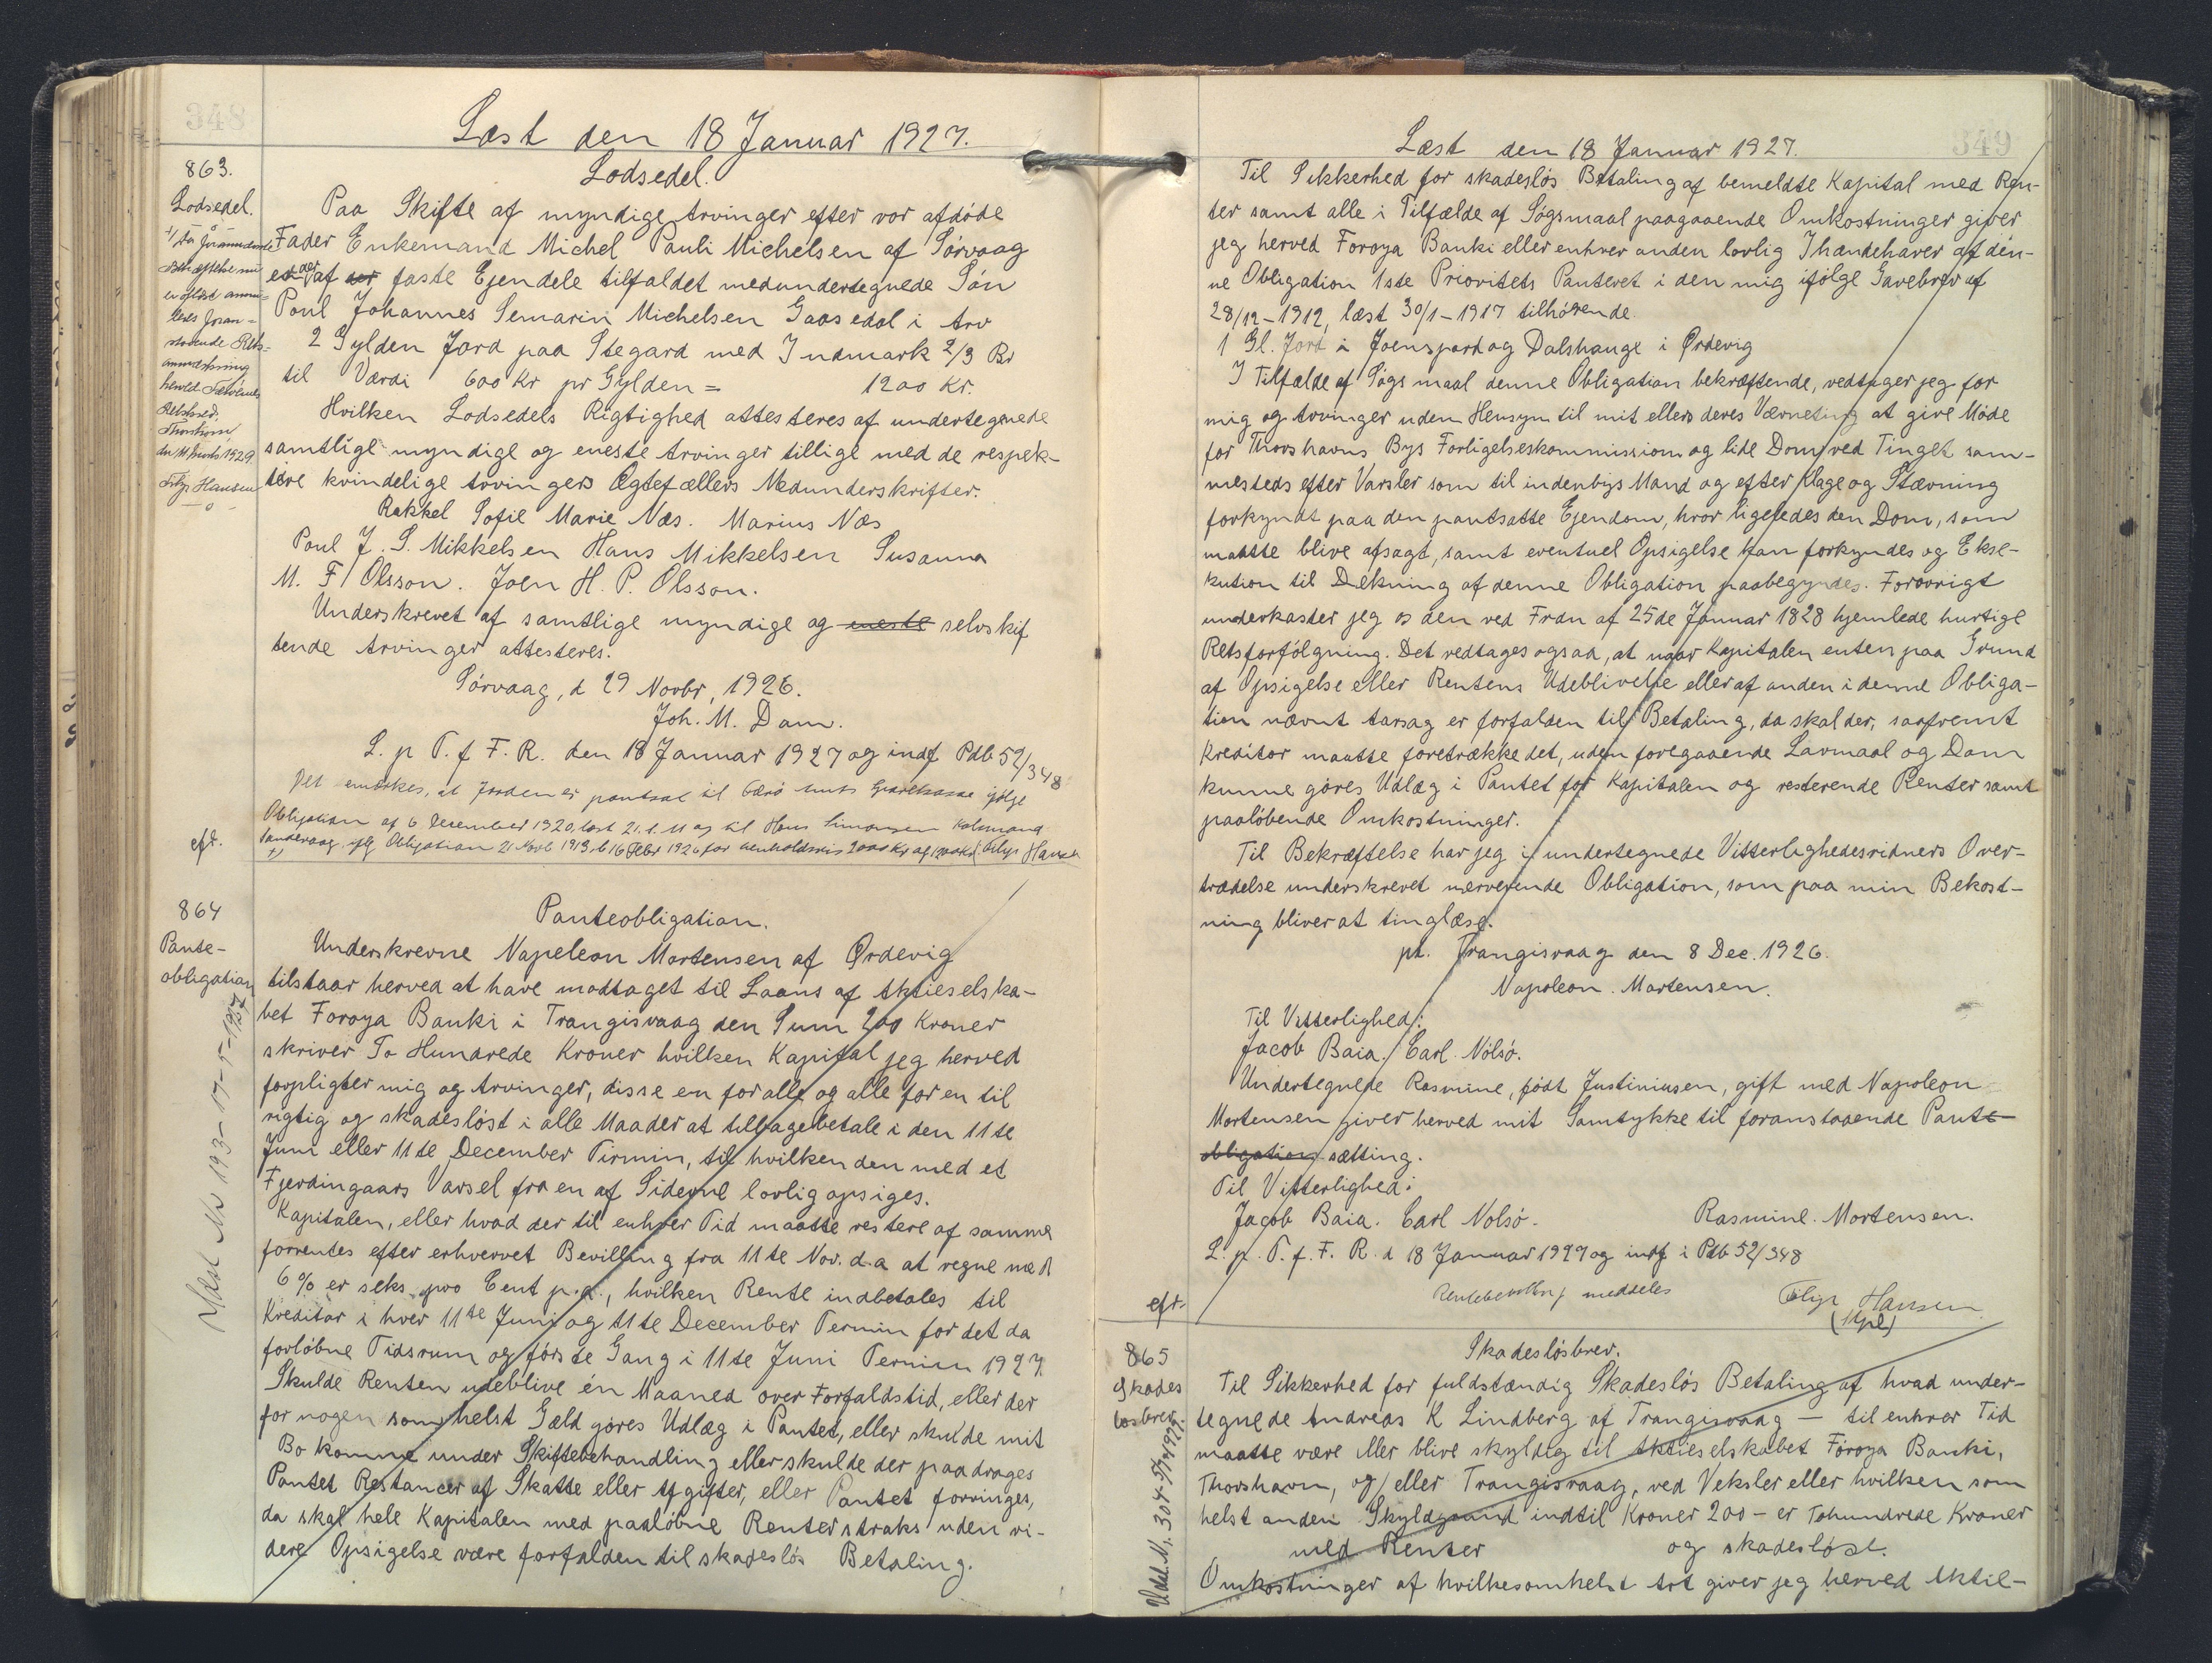 348
Læst den 18 Januar 1927.
863.
Lodsedel.
Lodsedel.
Paa Skifte af myndige Arvinger efter vor afdöde
Fader Enkemand Michel Pauli Michelsen af Sörvaag
er der af faste Ejendele tilfaldet medundertegnede Sön
Poul Johannes Semarin Michelsen Gaasedal i Arv
2 Gylden Jord paa Stegard med Indmark 2/3 Br
til Værdi 600 Kr pr Gylden = 1200 Kr.
Hvilken Lodsedels Rigtighed attesteres af undertegnede
samtlige myndige og eneste Arvinger tillige med de respek-
tive kvindelige Arvingers Ægtefællers Medunderskrifter.
Rakkel Sofie Marie Næs. Marius Næs
Poul J. S. Mikkelsen Hans Mikkelsen Susanna
M. F Olsson. Joen H. P. Olsson.
Underskrevet af samtlige myndige og eneste selvskif
tende Arvinger attesteres.
Sörvaag, d 29 Novbr, 1926.
Joh. M. Dam.
L. p T. f F. R. den 18 Januar 1927 og indf Pdb 52/348
Det bemærkes, at Jorden er pantsat til Færø Amts Sparekasse ifølge
Obligation af 6 December 1920, læst 21.1.11 og til Hans Simonsen Kolmand
Sandevaag, iflg Obligation 21 Novb 1913, l. 16 Febr 1926 for henholdsvis 2000 Kr og 1200 Kr. Filip Hansen
eft.
+)
+) da foranstaaende
Bekræftelse nu
er afløst annul-
leres foran-
staaende Rets-
anmærkning
herved. Færöernes
Retskred.
Thorshavn
den 11. Marts 1929.
Filip Hansen
864
Pante-
obligation
Udsl. No 193-17-5-1957
Panteobligation.
Underskrevne Napeleon Mortensen af Ørdevig
tilstaar herved at have modtaget til Laans af Aktieselska-
bet Foroya Banki i Trangisvaag den Sum 200 Kroner
skriver To Hundrede Kroner hvilken Kapital jeg herved
forpligter mig og Arvinger, disse en for alle og alle for en til
rigtig og skadesløst i alle Maader at tilbagebetale i den 11te
Juni eller 11te December Tirmin, til hvilken den med et
Fjerdingaars Varsel fra en af Siderne lovlig opsiges.
Kapitalen, eller hvad der til enhver Tid maatte restere af samme
forrentes efter erhvervet Bevilling fra 11te Nov. d.a at regne med
6% er seks pro Cent p.a., hvilken Rente indbetales til
Kreditor i hver 11te Juni og 11te December Termin for det da
forløbne Tidsrum og første Gang i 11te Juni Termin 1927.
Skulde Renten udeblive én Maaned over Forfaldstid, eller der
for nogen somhelst Gæld göres Udlæg i Pantet, eller skulde mit
Bo komme under Skiftebehandling eller skulde der paadrages
Pantet Restancer af Skatte eller Afgifter, eller Pantet forringes,
da skal hele Kapitalen med paaløbne Renter straks uden vi-
dere Opsigelse være forfalden til skadesløs Betaling.
349
Læst den 18 Januar 1927.
Til Sikkerhed for skadesløs Betaling af bemeldte Kapital med Ren-
ter samt alle i Tilfælde af Sögsmaal paagaaende Omkostninger giver
jeg herved Foroya Banki eller enhver anden lovlig Ihændehaver af den-
ne Obligation 1ste Prioritets Panteret i den mig ifölge Gavebrev af
28/12-1912, læst 30/1-1917 tilhörende
1 Gl. Jord i Joensjord og Dalshauge i Ørdevig
I Tilfælde af Sögsmaal denne Obligation bekræftende, vedtager jeg for
mig og Arvinger uden Hensyn til mit ellers deres Værneting at give Möde
for Thorshavns Bys Forligelseskommission og lide Dom ved Tinget sam-
mesteds efter Varsler som til indenbys Mand og efter Klage og Stævning
forkyndt paa den pantsatte Ejendom, hvor ligeledes den Dom, som
maatte blive afsagt, samt eventuel Opsigelse kan forkyndes og Ekse-
kution til Dekning af denne Obligation paabegyndes. Forøvrigt
underkaster jeg os den ved Frdn af 25de Januar 1828 hjemlede hurtige
Retsforfölgning. Det vedtages ogsaa, at naar Kapitalen enten paa Grund
af Opsigelse eller Rentens Udeblivelse eller af anden i denne Obliga-
tion nævnt Aarsag er forfalden til Betaling, da skal der, saafremt
Kreditor maatte foretrække det, uden foregaaende Lavmaal og Dom
kunne göres Udlæg i Pantet for Kapitalen og resterende Renter samt
paalöbende Omkostninger.
Til Bekræftelse har jeg i undertegnede Vitterlighedsvidners Over-
trædelse underskrevet nærværende Obligation, som paa min Bekost-
ning bliver at tinglæse.
pt. Trangisvaag den 8 Dec. 1926.
Napoleon. Mortensen.
Til Vitterlighed:
Jacob Baia. Carl Nölsö.
Undertegnede Rasmine, födt Justiniusen, gift med Napoleon
Mortensen giver herved mit Samtykke til foranstaaende Pant-
obligation sætting.
Til Vitterlighed:
Jacob Baia. Carl Nolsö. Rasmine. Mortensen.
L. p. T. f. F. R. d 18 Januar 1927 og indf i Pdb 52/348
Rentebevilling meddeles
Filip Hansen
eft.
865
Skades
løsbrev.
Udsl. N. 304-
Skadeslösbrev.
Til Sikkerhed for fuldstændig Skadeslös Betaling af hvad under-
tegnede Andreas K Lindberg af Trangisvaag — til enhver Tid
maatte være eller blive skyldig til Aktieselskabet Föroya Banki,
Thorshavn, og/eller Trangisvaag, ved Veksler eller hvilken som
helst anden Skyldgrund indtil Kroner 200 – er Tohundrede Kroner
med Renter og skadesløse.
Omkostninger af hvilkesomhelst Art giver jeg herved Aktil-